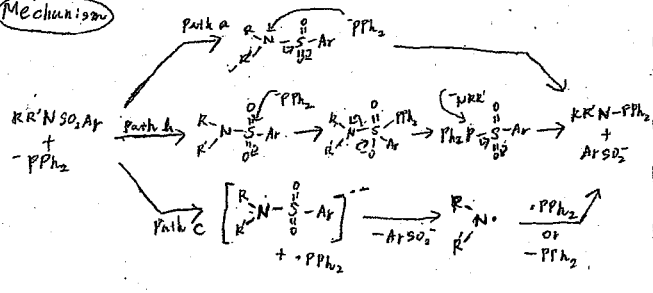 Mechanism
Path a
R
R'
N
O
S
O
Ar
-PPh2
RR'NSO2Ar
+
-PPh2
Path b
R
R'
N
O
S
O
Ar
-PPh2
R
R'
N
O
S
O
PPh2
Ar
-NRR'
Ph2P
O
S
O
Ar
RR'N-PPh2
+
ArSO2-
Path C
R
R'
N
O
S
O
Ar
+ ·PPh2
-ArSO2-
R
R'
N·
·PPh2
or
-PPh2